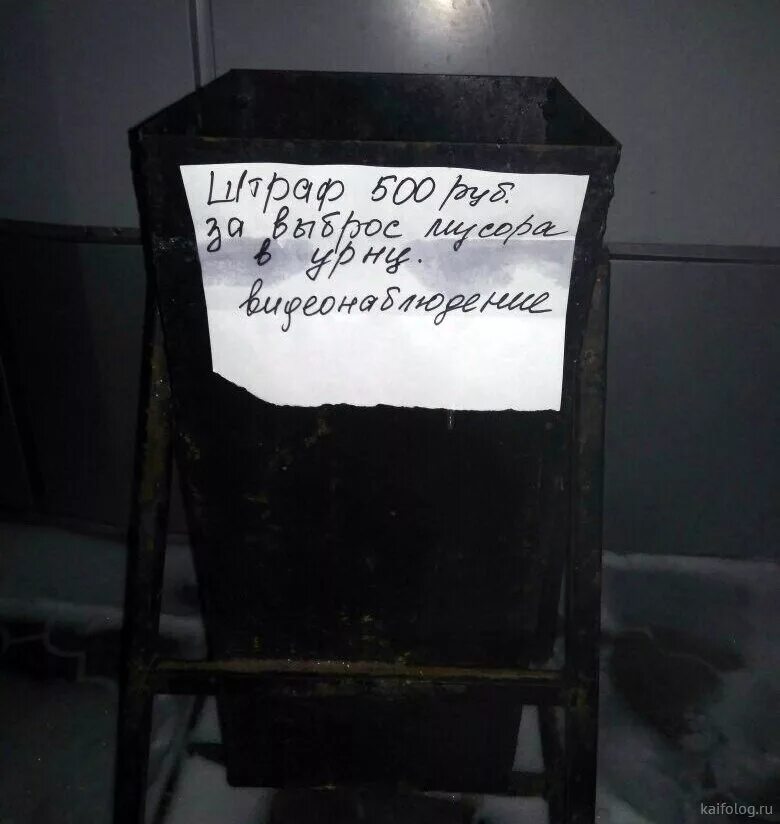 Штраф 500 руб.
за выброс мусора
в урну.
видеонаблюдение
kaifolog.ru